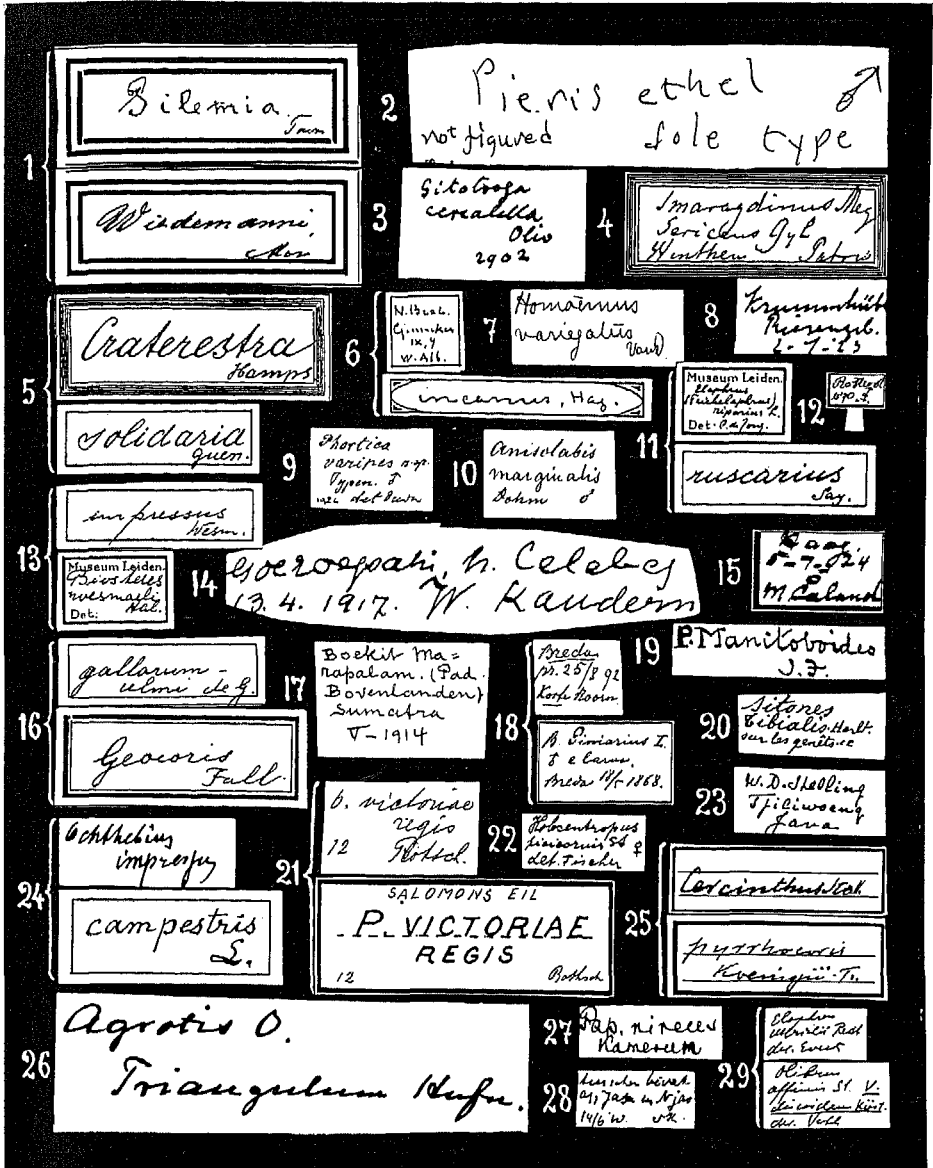 1
Gilemia
Wiedemanni,
2
Pieris ethel ♂
not figured sole type
3
Sitotroga
cerealella
Oliv
1902
4
Smaragdinus Meg
Sericeus Gyl
Winthem
5
Craterestra
Hamps
solidaria
Guen.
6
N. Brab.
Ginneken
IX, 9
W. Alb.
incanus, Hag.
7
Homaemus
variegatus
8
Krummhüb
Riesengeb.
2-7-23
9
Phortica
varipes n. sp.
Typen.
10
Anisolabis
marginalis
Dohrn ♂
11
Museum Leiden.
Elaphrus
riparius L.
Det: C. de Jong.
ruscarius
Say.
12
13
impressus
Wesm.
Museum Leiden.
Biosteres
wesmaeli
Hal.
Det:
14
Goeroepahi, N. Celebes
13. 4. 1917. W. Kaudern
15
Haag,
5-7-'24
16
gallarum-
ulmi de G.
Geocoris
Fall.
17
Boekit Ma=
rapalam. (Pad.
Bovenlanden)
Sumatra
V-1914
18
Breda
pr. 25/8 92
B. Simiarius L.
f e larva.
Breda 1868.
19
P. Manitoboides
J. F.
20
Sitones
tibialis. Herbt.
sur les genêts
21
O. victoriae
regis
12 Rothsch.
SALOMONS EIL
P. VICTORIAE
REGIS
12 Rothsch
22
Holocentropus
picicornis St ♀
det. Fischer
23
W. D. Stelling
Tjiliwoeng
Java
24
Ochthebius
impressus
campestris
L.
25
Cercinthus Stål.
pyrrhocoris
Koenigii
26
Agrotis O.
Triangulum Hufn.
27
Pap. nireus
Kamerun
28
14/6
29
Elaphrus
det. Everts
affinis St. V.